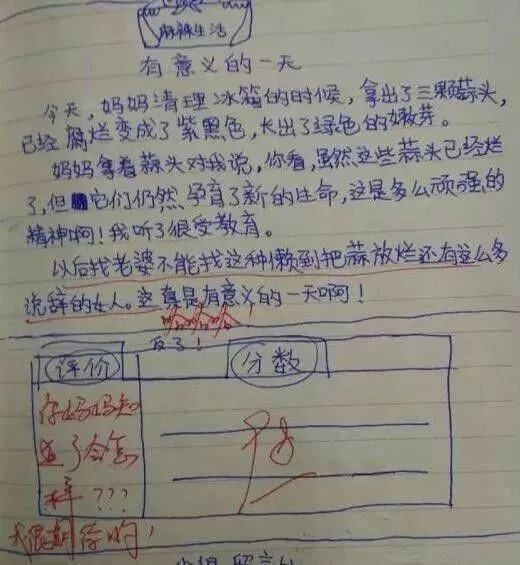 麻辣生活
有意义的一天
今天,妈妈清理冰箱的时候,拿出了三颗蒜头,
已经腐烂变成了紫黑色,长出了绿色的嫩芽。
妈妈拿着蒜头对我说,你看,虽然这些蒜头已经烂
了,但它们仍然孕育了新的生命,这是多么顽强的
精神啊!我听了很受教育。
以后找老婆不能找这种懒到把蒜放烂还有这么多
说辞的女人。这真是有意义的一天啊!
哈哈哈
反了!
评价
分数
你妈妈知
道了会怎
样???
我很期待哟!
优
小组留言